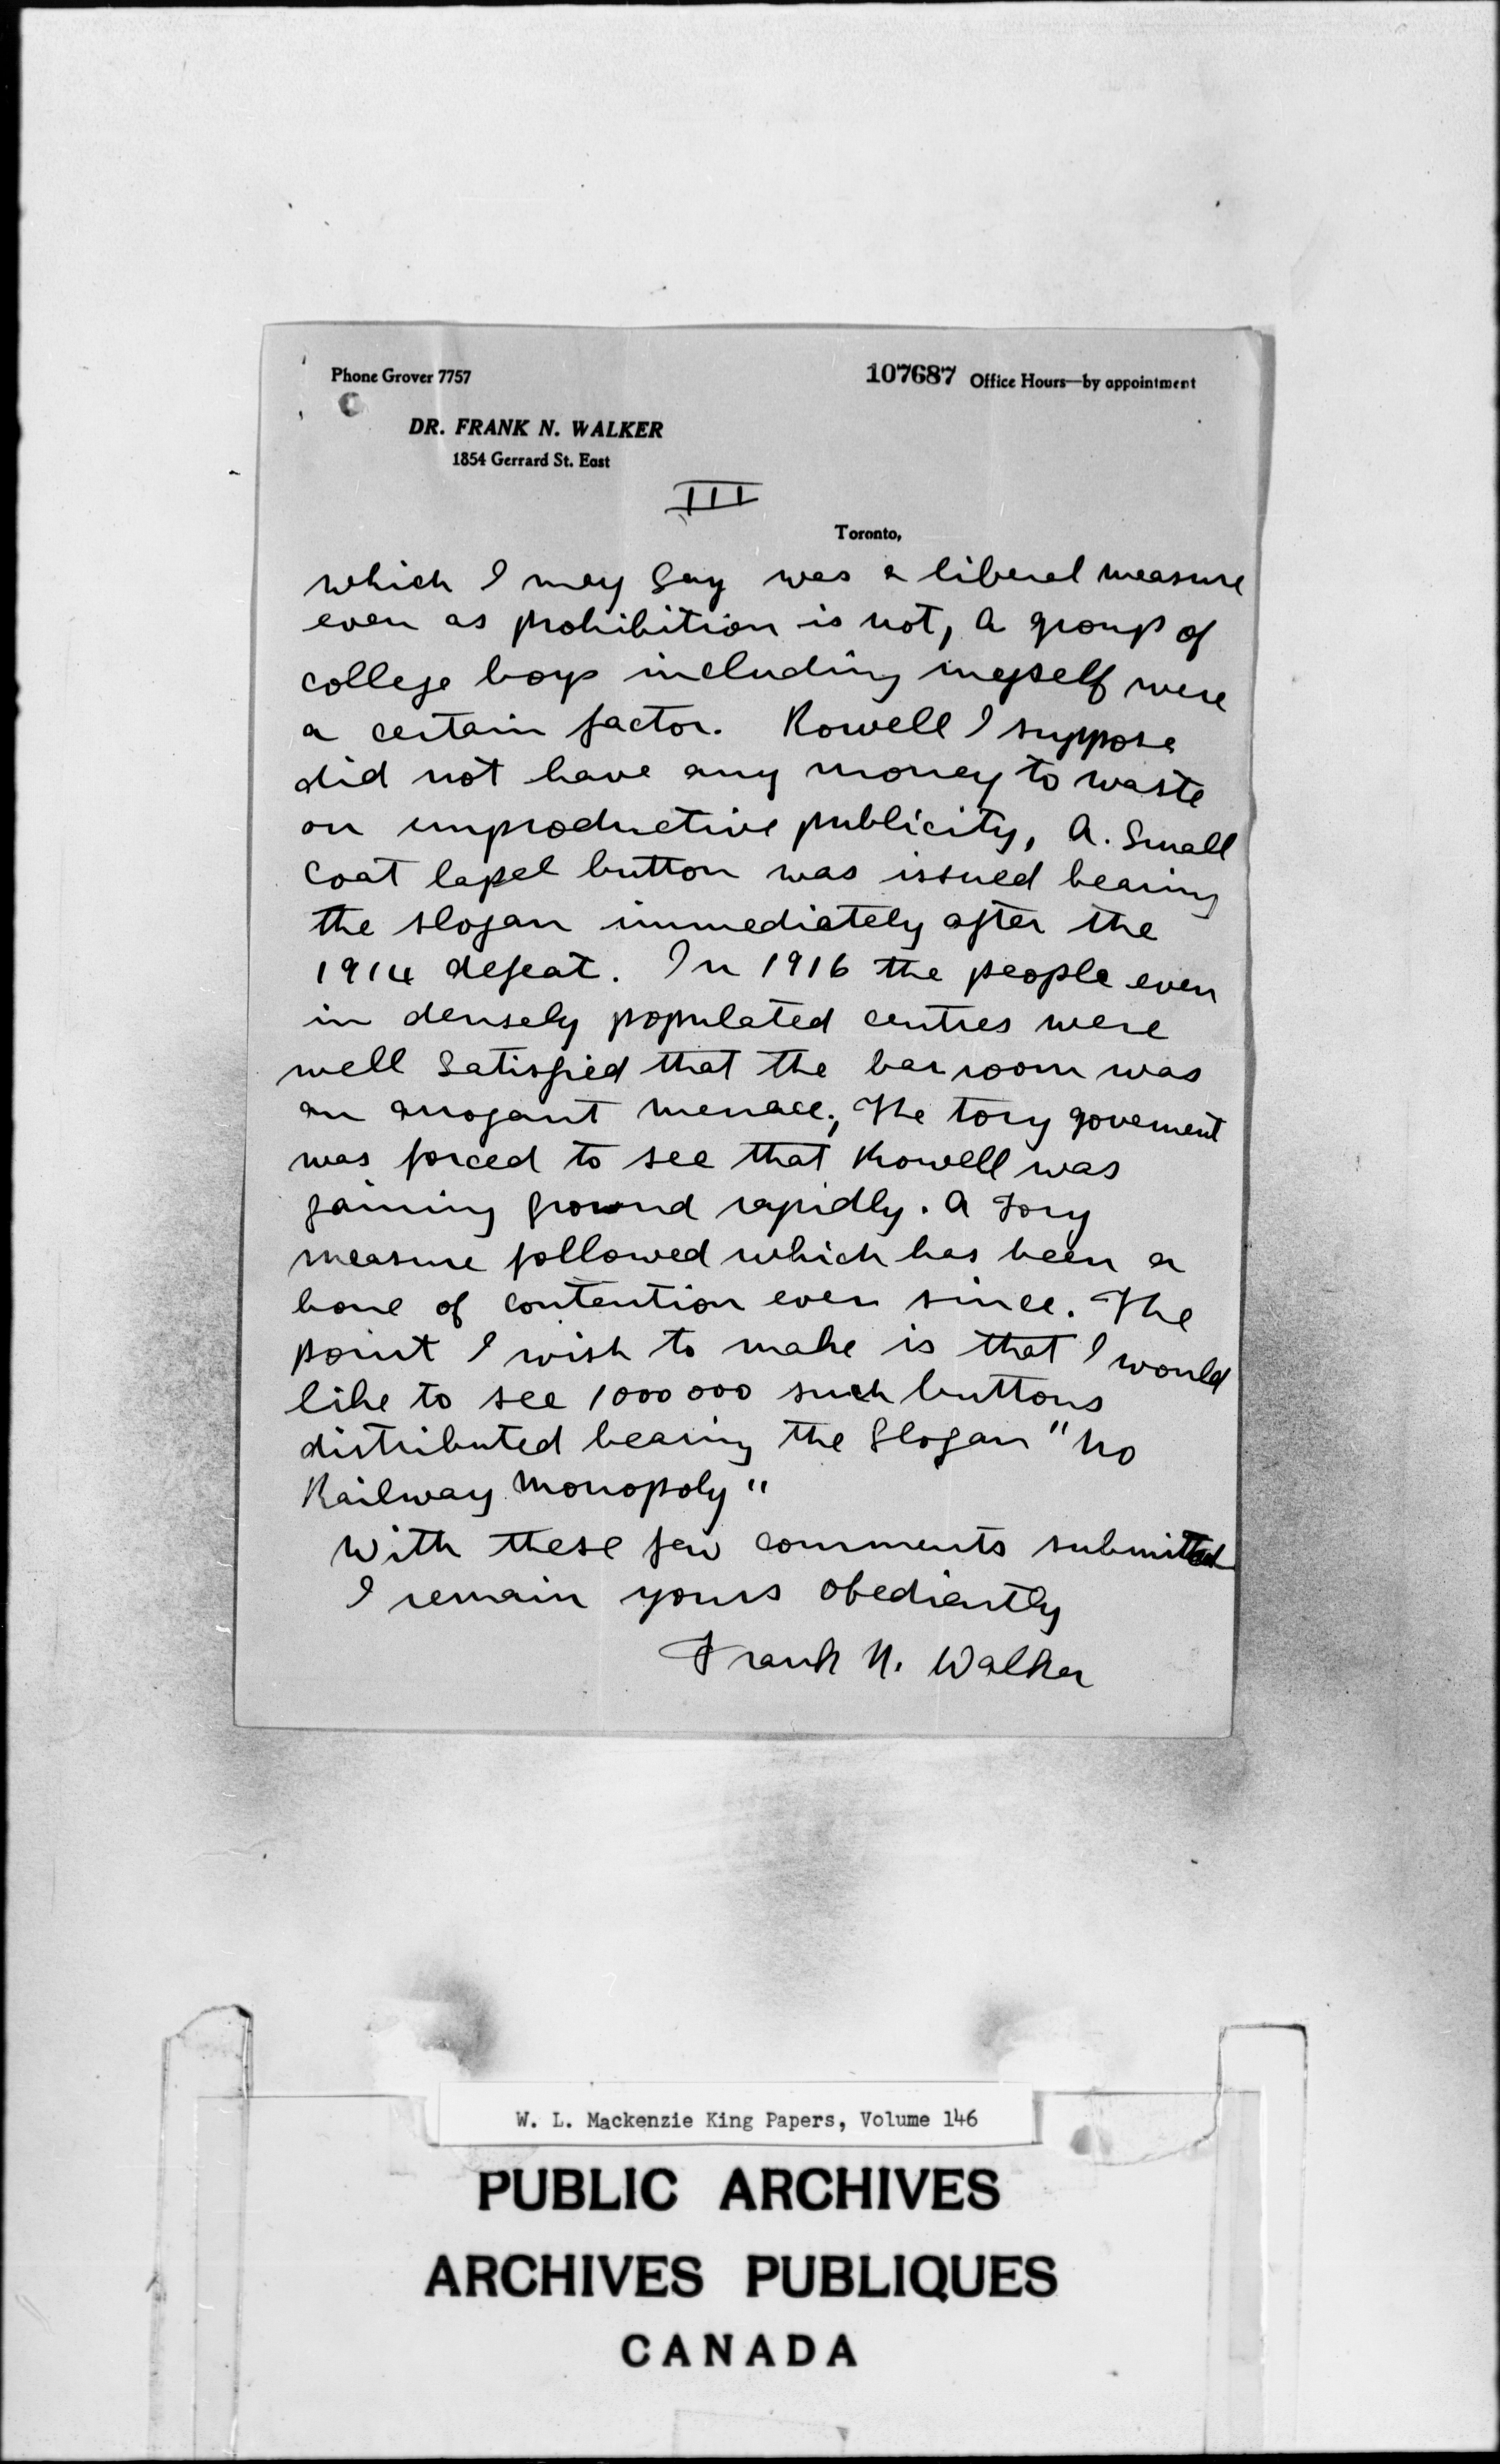 Phone Grover 7757
107687 Office Hours—by appointment
DR. FRANK N. WALKER
1854 Gerrard St. East
III
Toronto,
which I may say was a liberal measure
even as prohibition is not, a group of
college boys including myself were
a certain factor. Rowell I suppose
did not have any money to waste
on unproductive publicity, A. small
coat lapel button was issued bearing
the slogan immediately after the
1914 defeat. In 1916 the people even
in densely populated centres were
well satisfied that the bar room was
an arrogant menace; The tory goverment
was forced to see that Rowell was
gaining ground rapidly. A Tory
measure followed which has been a
bone of contention ever since. The
point I wish to make is that I would
like to see 1000000 such buttons
distributed bearing the slogan "No
Railway Monopoly"
With these few comments submitted
I remain yours obediantly
Frank N. Walker
W. L. Mackenzie King Papers, Volume 146
PUBLIC ARCHIVES
ARCHIVES PUBLIQUES
CANADA